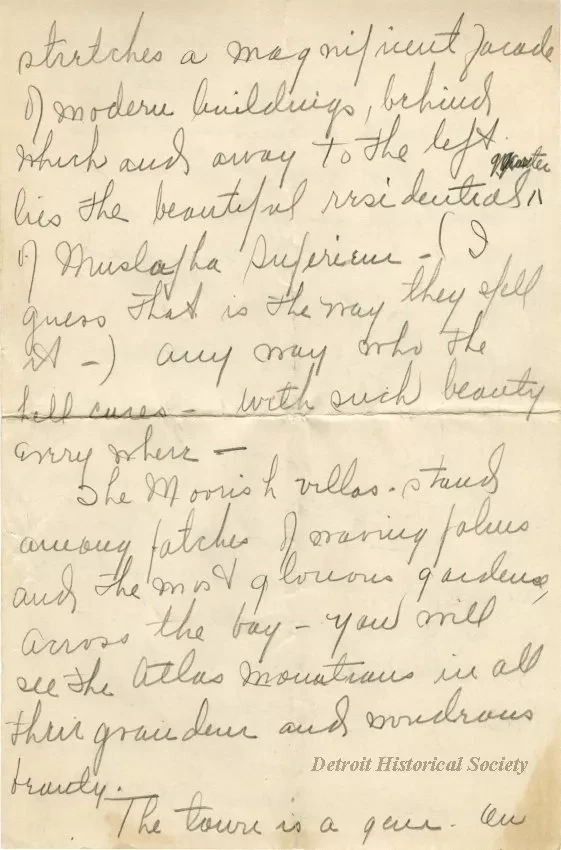 stretches a magnificent facade
of modern buildings, behind
which and away to the left
quarter
lies the beautiful residential ^
of Mustapha Superieur - (I
guess that is the way they spell
it -) any way who the
hell cares - with such beauty
every where -
The Moorish villas - stand
among patches of waving palms
and the most glorious gardens,
across the bay - you will
see the Atlas Mountains in all
their grandeur and wondrous
beauty.
Detroit Historical Society
The town is a gem. On